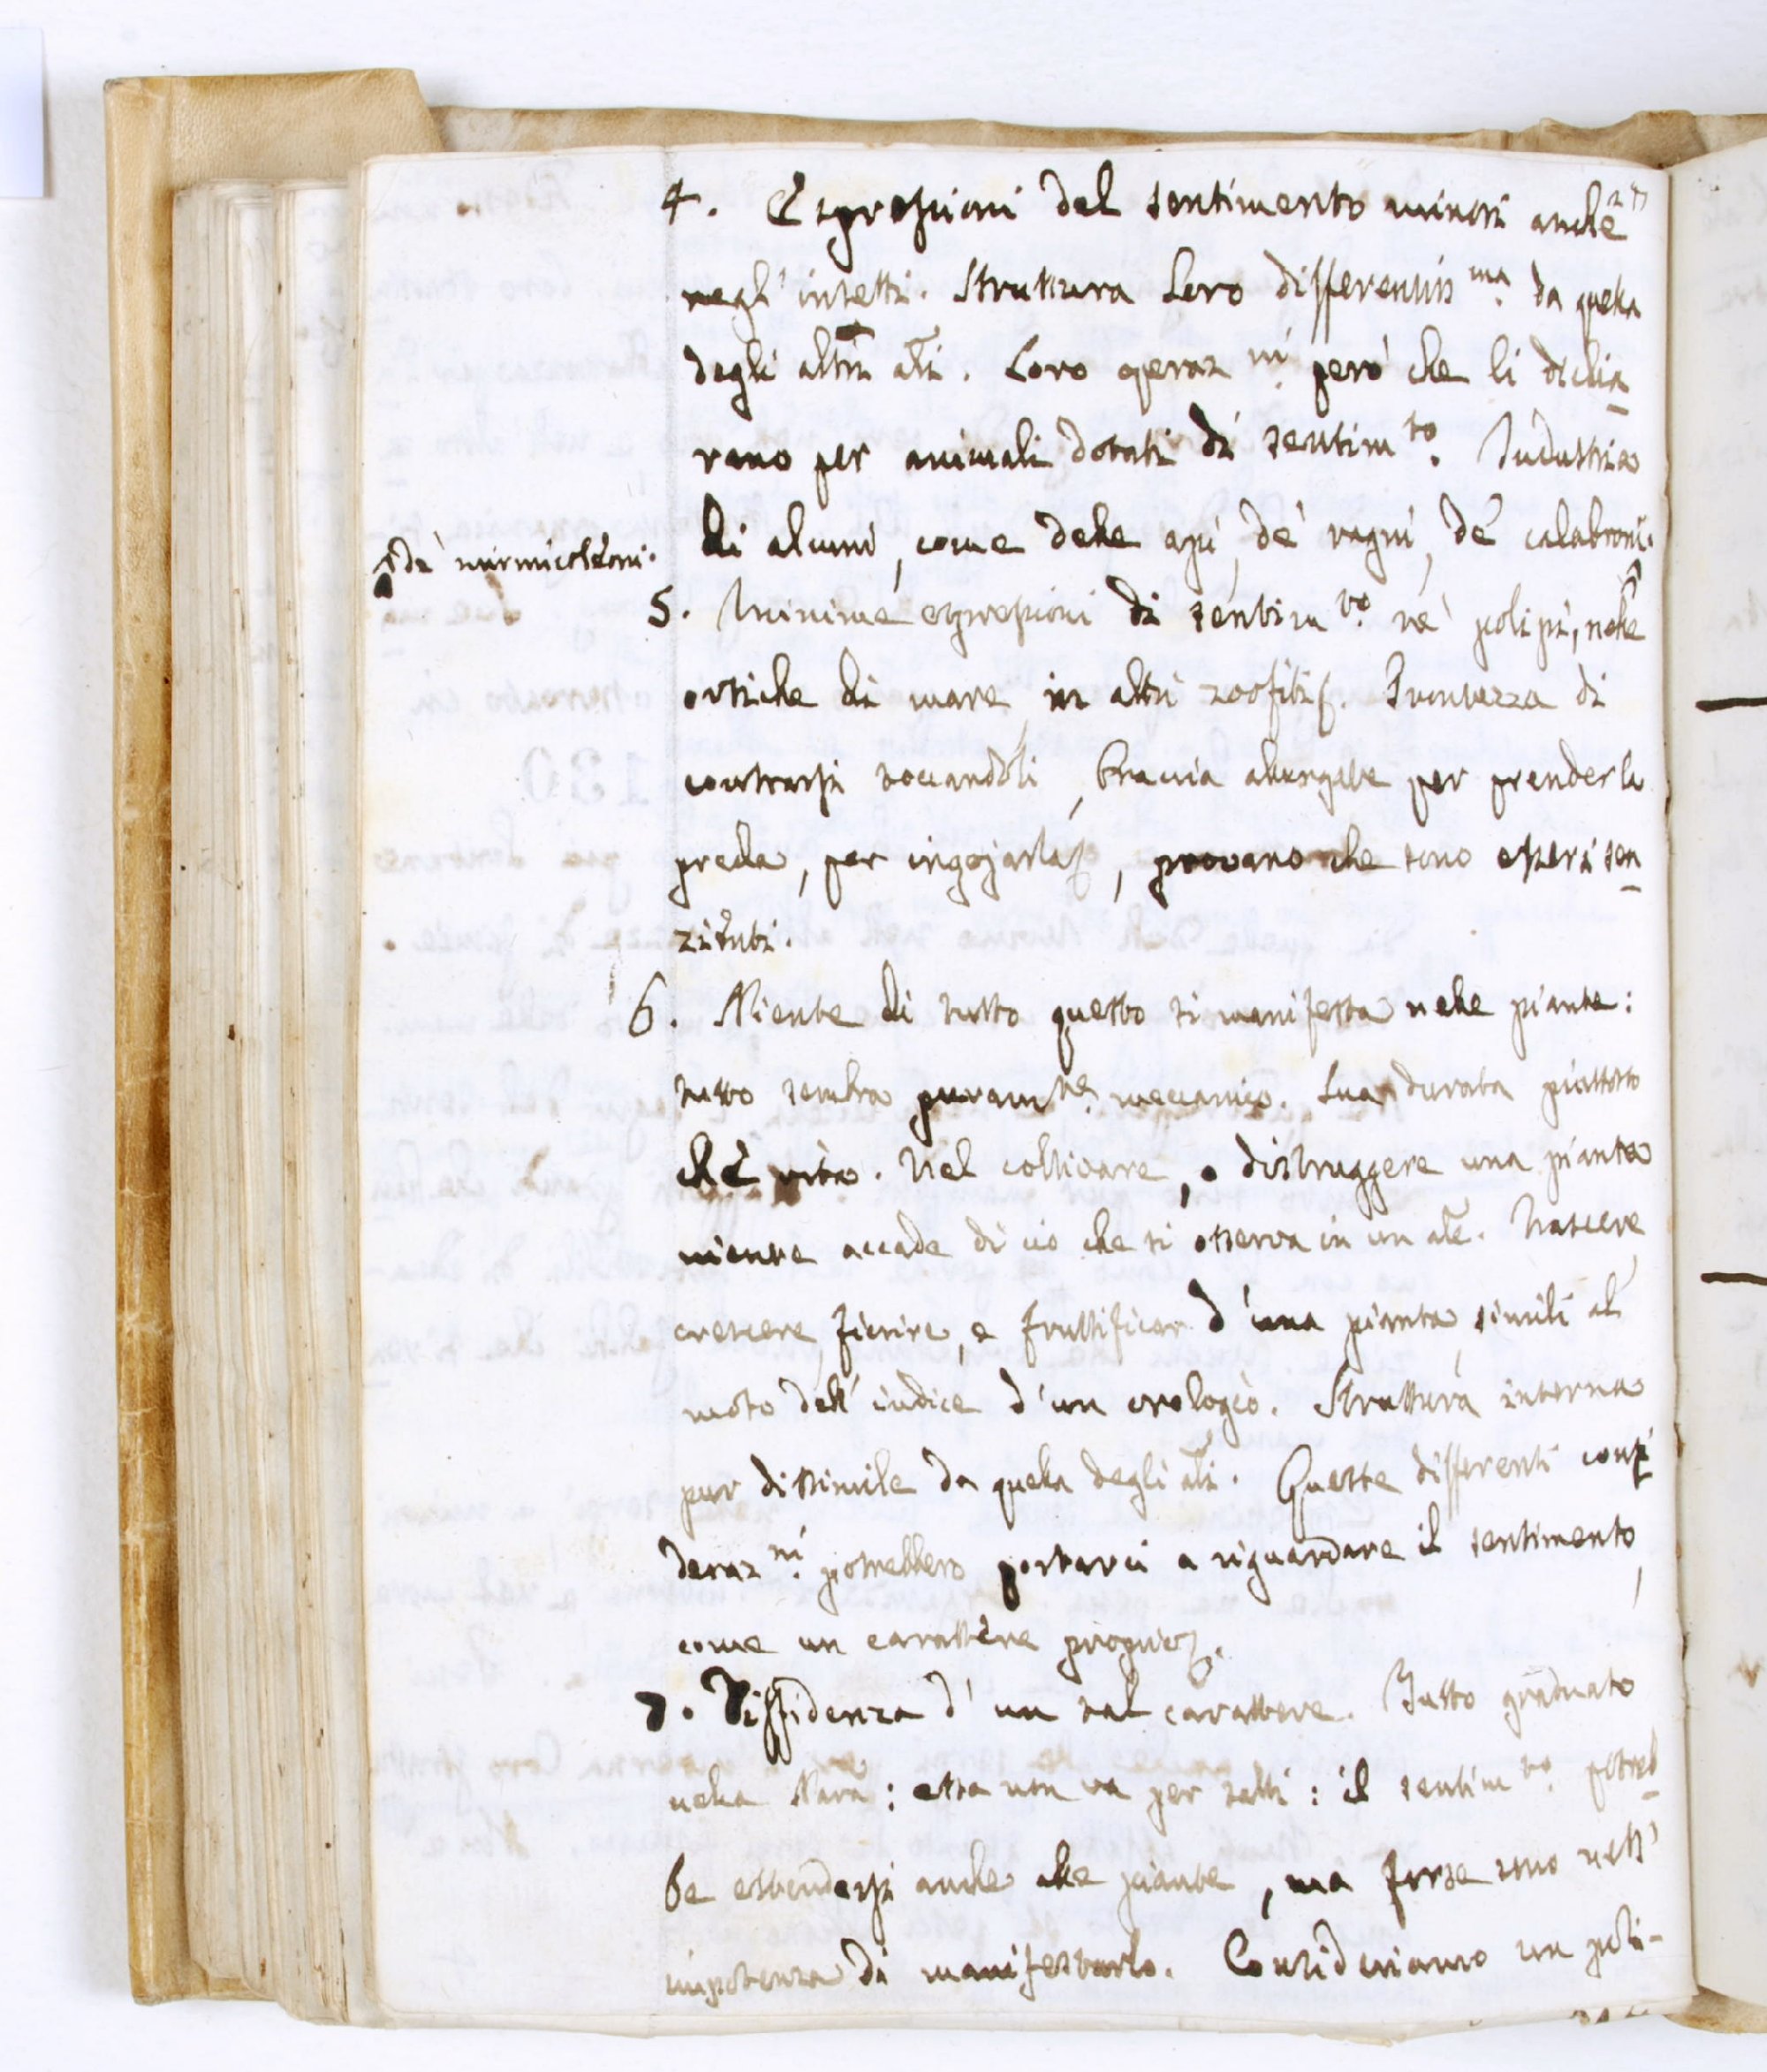 4. Espressioni del sentimento minori anche
negl'insetti. Struttura loro differentiss.ma da quella
degli altri ali. Loro operaz.ni però che li dichia
rano per animali dotati di sentim.to. Industria
di alcuni, come delle api, de' ragni, de' calabroni.
de' mirmicoleoni.
5. Minime espressioni di sentim.to ne' polipi, nelle
ortiche di mare, in altri zoofiti. Prontezza di
contrarsi toccandoli, braccia allungate per prender la
preda, per ingojarla, provano che sono esseri sen
zitivi.
6 Niente di tutto questo si manifesta nelle piante:
tutto sembra puram.te meccanico. Sua durata piuttosto
che vita. Nel coltivare, o distruggere una pianta
niente accade di ciò che si osserva in un ale. Nascere,
crescere, fiorire, e fruttificar d'una pianta, simili al
moto dell'indice d'un orologio. Struttura interna
pur dissimile da quella degli ali. Queste differenti consi
deraz.ni potrebbero portarci a riguardare il sentimento,
come un carattere proprio.
7. Diffidenza d'un tal carattere. Tutto graduato
nella Nara: essa non va per salti: il sentim.to potreb
be estendersi anche alle piante, ma forse sono nell'
impotenza di manifestarlo. Consideriamo un poli-